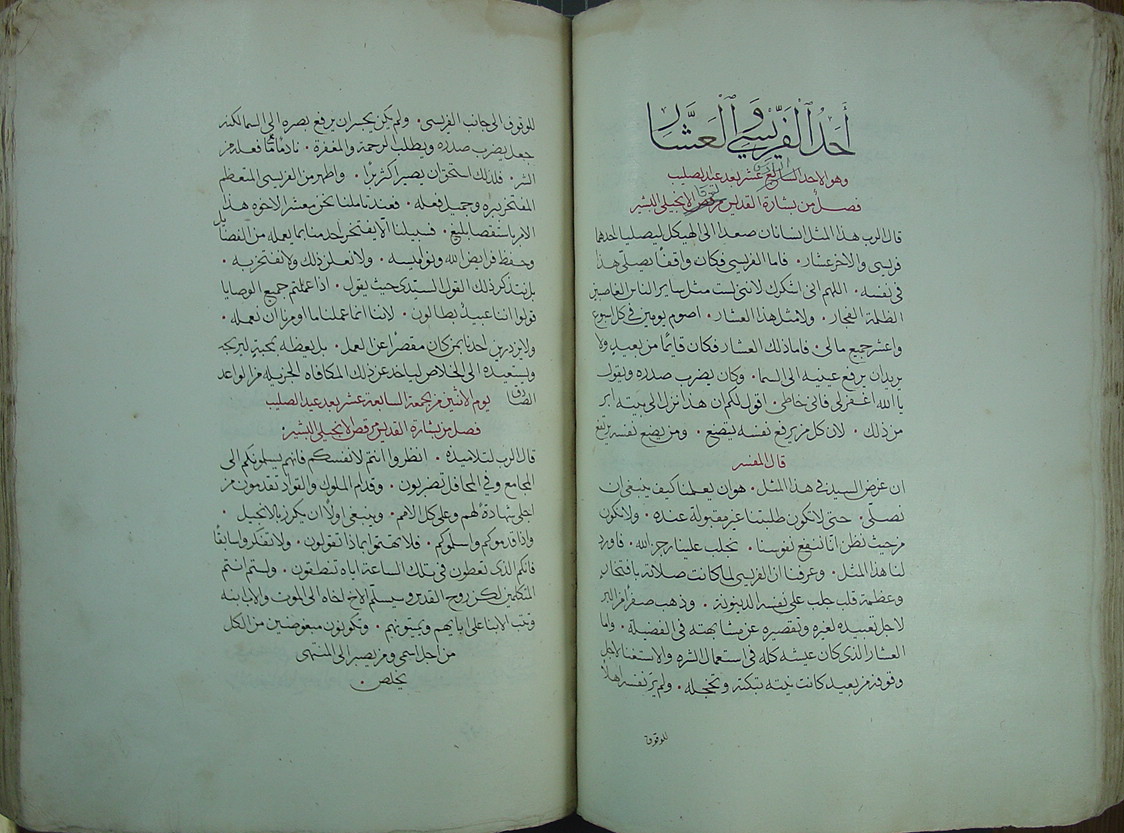 أحد الفريسي والعشار
وهو الاحد السابع عشر بعد عيد الصليب
فصل من بشارة القديس مرقص الانجيلي البشير
قال الرب هذا المثل انسانان صعدا الى الهيكل ليصليا احدهما
فريسي والاخر عشار . فاما الفريسي فكان واقفا يصلي هذا
في نفسه . اللهم اني اشكرك لانني لست مثل ساير الناس الغاصبين
الظلمة الفجار . ولا مثل هذا العشار . اصوم يومين في كل اسبوع
واعشر جميع مالي . فاما ذلك العشار فكان قائما من بعيد ولا
يريد ان يرفع عينيه الى السما . وكان يضرب صدره ويقول
يا الله اغفر لي فاني خاطي . اقول لكم ان هذا نزل الى بيته ابر
من ذلك . لان كل من يرفع نفسه يتضع . ومن يضع نفسه يرتفع
قال المفسر
ان غرض السيد في هذا المثل . هو ان يعلمنا كيف ينبغي ان
نصلي . حتى لا تكون طلبتنا غير مقبولة عنده . ولا تكون
من حيث نظن اننا ننفع نفوسنا . نجلب علينا رجز الله . فاورد
لنا هذا المثل . وعرفنا ان الفريسي لما كانت صلاته بافتخار
وعظمة قلب جلب على نفسه الدينونة . وذهب صفرا من البر
لاجل تعييبه لغيره وتقصيره عن مشابهته في الفضيلة . واما
العشار الذي كان عيشه كله في استعمال الشره والاستغنا لاجل
وقوفه من بعيد كانت نيته تبكته وتخجله . ولم ير نفسه اهلا
للوقوف
للوقوف الى جانب الفريسي . ولم يكن يجسر ان يرفع بصره الى السما لكنه
جعل يضرب صدره ويطلب الرحمة والمغفرة . نادما على ما فعله من
الشر . فلذلك استحق ان يصير اكثر برا . واظهر من الفريسي المتعظم
المفتخر ببره وجميل فعله . فعند تاملنا نحن معشر الاخوه هذا
الامر باستقصا بليغ . فسبيلنا ألا يفتخر احد منا بما يعمله من الفضائل
وحفظ فرايض الله ونواميسه . ولا نعلن ذلك ولا نفتخر به .
بل نتذكر ذلك القول السيدي حيث يقول . اذا عملتم جميع الوصايا
قولوا اننا عبيد بطالون . لاننا انما عملنا ما اومرنا ان نعمله .
ولا يزدرين احدنا بمن كان مقصرا عن العمل . بل يعظه بمحبة ليربحه
ويستعيده الى الخلاص لياخذ عن ذلك المكافاه الجزيله من الواعد
الصادق
يوم الاثنين من الجمعة السابعة عشر بعد عيد الصليب
فصل من بشارة القديس مرقص الانجيلي البشير
قال الرب لتلاميذه . انظروا انتم لانفسكم فانهم يسلمونكم الى
المجامع وفي المحافل تضربون . وقدام الملوك والقواد تقدمون من
اجلي شهادة لهم وعلى كل الامم . وينبغي اولا ان يكرز بالانجيل .
واذا قدموكم واسلموكم . فلا تهتموا بماذا تقولون . ولا تفتكروا سابقا
فانكم الذي تعطون في تلك الساعة اياه تنطقون . ولستم انتم
المتكلمين لكن روح القدس وسيسلم الاخ اخاه الى الموت والاب ابنه
وتثب الابنا على ابايهم ويميتونهم . وتكونون مبغوضين من الكل
من اجل اسمي ومن يصبر الى المنتهى
يخلص .